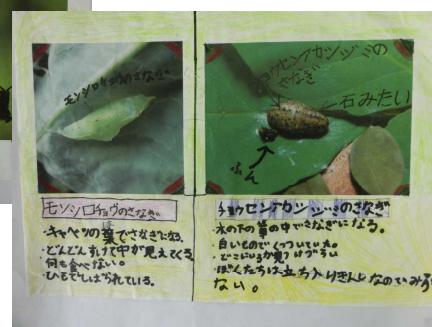 モンシロチョウのさなぎ
チョウセンアカシジミの
さなぎ
石みたい
ふん
モンシロチョウのさなぎ
・キャベツの葉でさなぎになる。
・どんどんすけて中が見えてくる
何も食べない。
・ひもでしばられている。
チョウセンアカシジミのさなぎ
・木の下の草の中でさなぎになる。
・白いものでくっついていた。
・どこにいるか見つけづらい
・ぼくたちは立ち入りきんしなのでみ
ない。